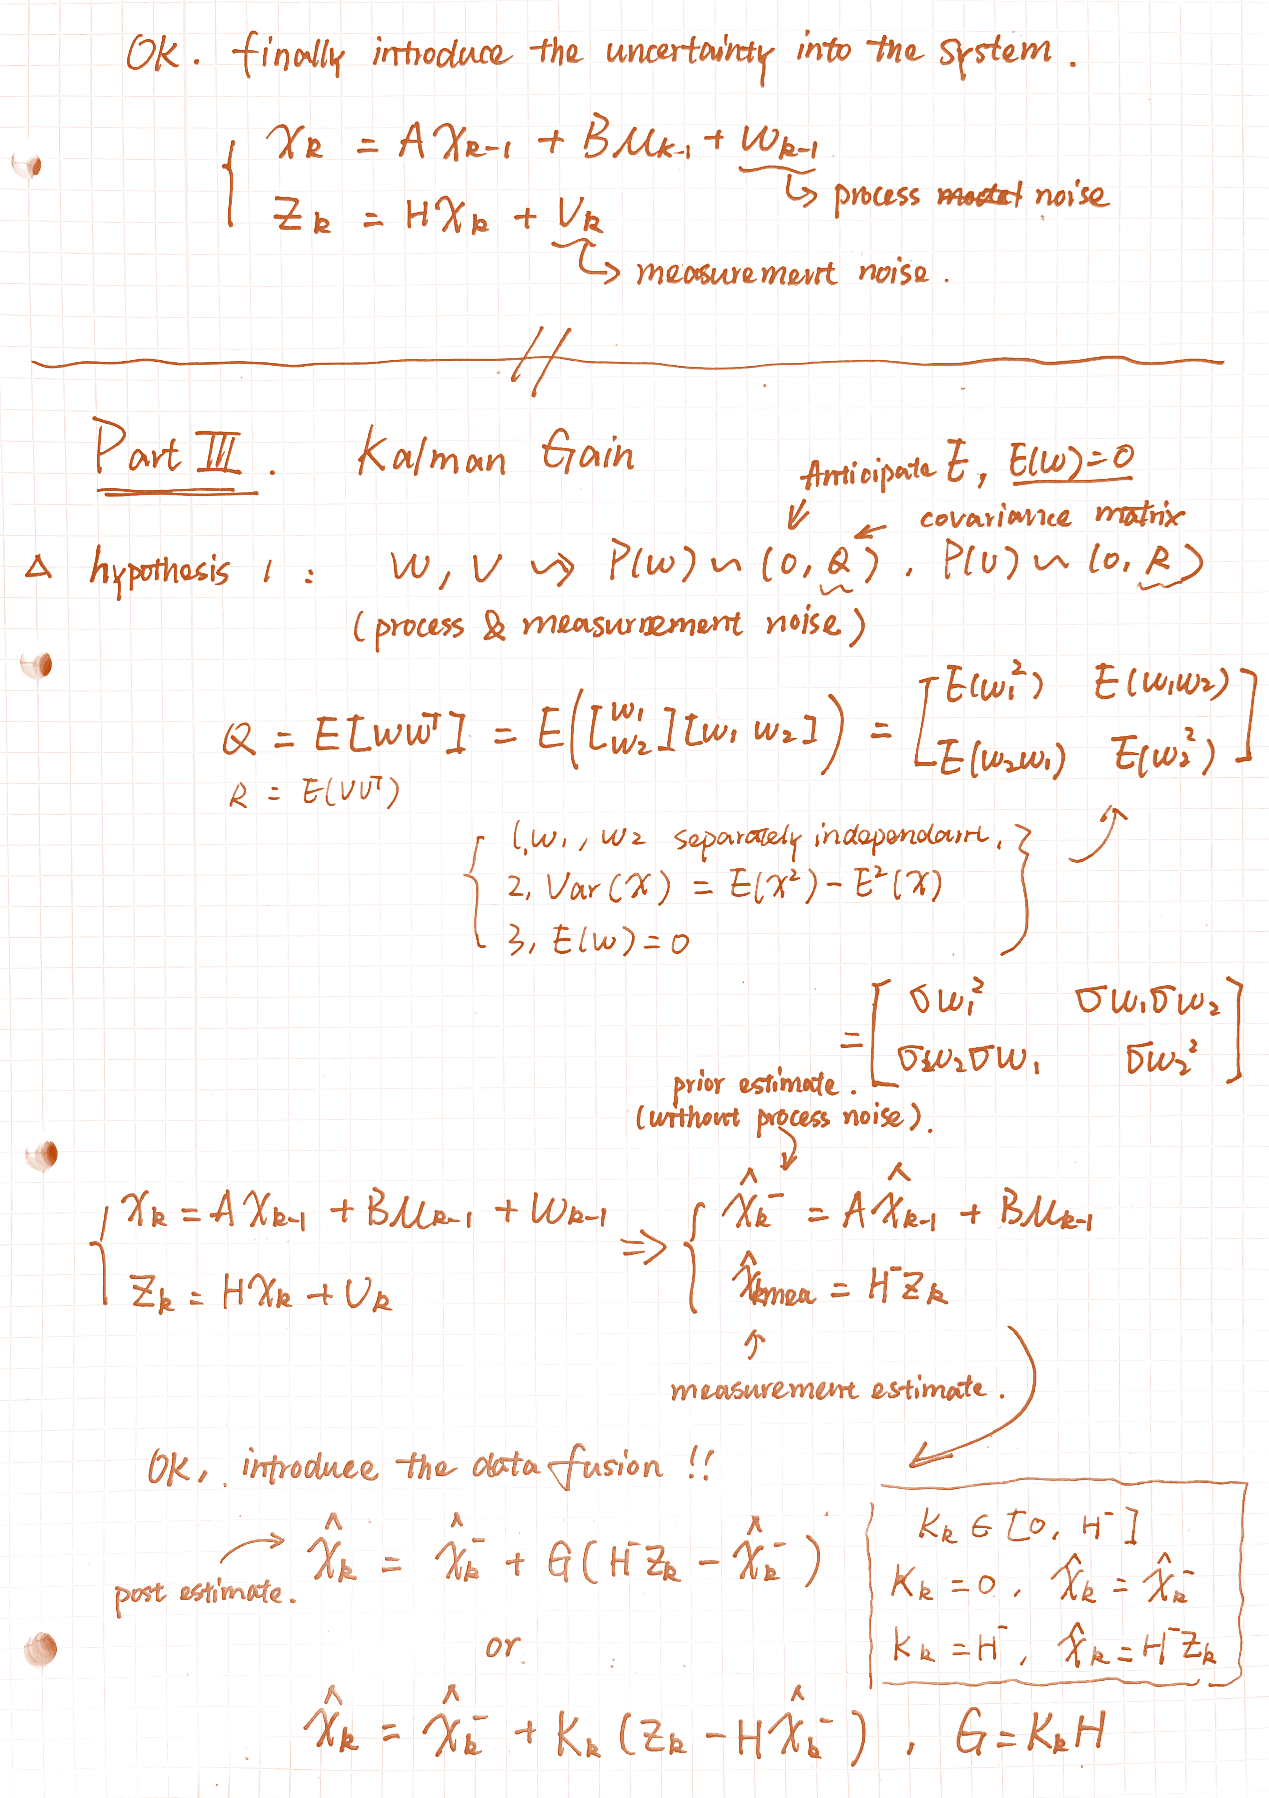 OK. finally introduce the uncertainty into the system.
x_k = A x_{k-1} + B u_{k-1} + w_{k-1}
↳ process noise
z_k = H x_k + v_k
↳ measurement noise.
Part III. Kalman Gain
Anticipate E, E(w)=0
← covariance matrix
Δ hypothesis 1: w, v ⇝ P(w) ~ (0, Q), P(v) ~ (0, R)
(process & measurnement noise)
Q = E[ww^T] = E([w_1 w_2][w_1 w_2]) = [E(w_1^2) E(w_1w_2) E(w_2w_1) E(w_2^2)]
R = E(vv^T)
1, w_1, w_2 separately independant,
2, Var(x) = E(x^2) - E^2(x)
3, E(w) = 0
= [σw_1^2 σw_1σw_2 σw_2σw_1 σw_2^2]
prior estimate.
(without process noise).
x_k = A x_{k-1} + B u_{k-1} + w_{k-1} ⇒ x̂_k^- = A x̂_{k-1} + B u_{k-1}
z_k = H x_k + v_k x̂_{kmea} = H^- z_k
↑
measurement estimate.
OK, introduce the data fusion !!
post estimate. → x̂_k = x̂_k^- + G(H^- z_k - x̂_k^-)
or
x̂_k = x̂_k^- + K_k (z_k - H x̂_k^-), G = K_k H
K_k ∈ [0, H^-]
K_k = 0, x̂_k = x̂_k^-
K_k = H^-, x̂_k = H^- z_k